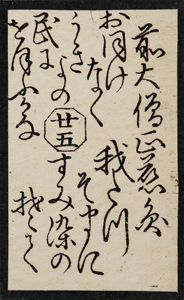 前大僧正慈円
おほけ
なく
うき
よの
民に
おほふかな
廿五
我たつ
そまに
すみ染の